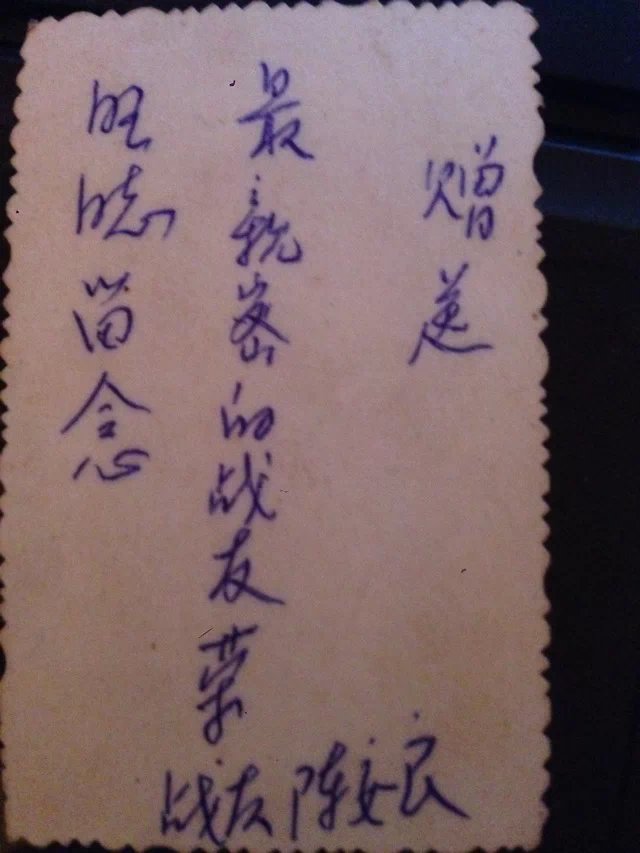 赠送
最親密的战友荣
旺留念
战友陈安良